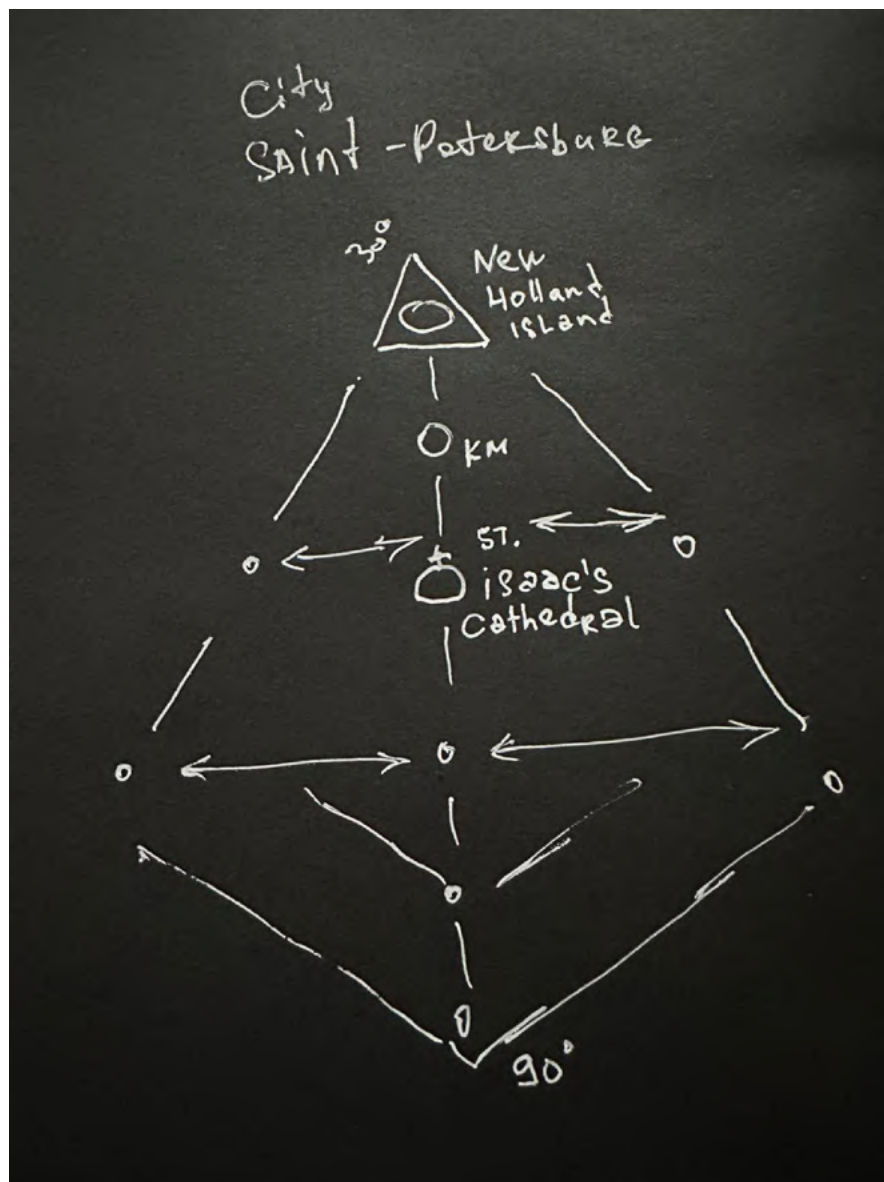 City
Saint-Petersburg
New
Holland
Island
KM
ST.
isaac's
Cathedral
90°